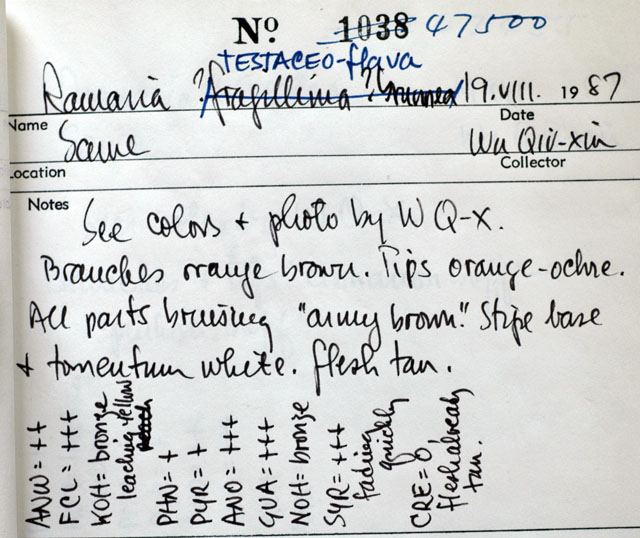 Nº 1038 47500
TESTACEO-flava
Ramaria ?fragillima? 19.VIII. 1987
Name Date
Same Wu Qiu-xin
Location Collector
Notes See colors + photo by W Q-X.
Branches orange brown. Tips orange-ochre.
All parts bruising "army brown." Stipe base
+ tomentum white. flesh tan.
ANW = ++
FCL = +++
KOH = bronze
leaching yellow
PHN = +
PYR = +
ANO = +++
GUA = +++
NOH = bronze
SYR = +++
fading
quickly
CRE = 0,
flesh already
tan.